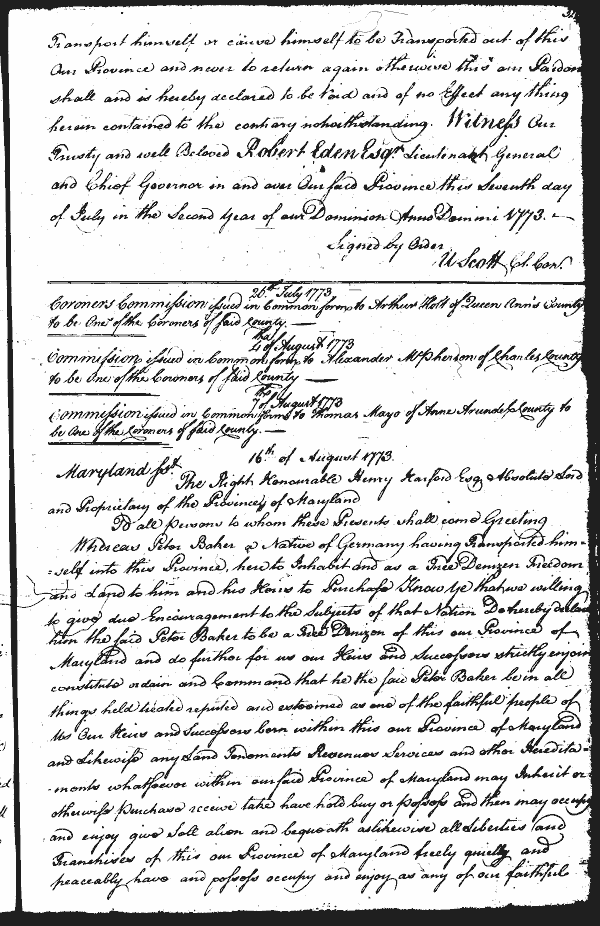 Transport himself or cause himself to be Transported out of this
Our Province and never to return again otherwise this our Pardon
shall and is hereby declared to be Void and of no Effect any thing
herein contained to the contrary notwithstanding. Witness Our
Trusty and well Beloved Robert Eden Esqr Lieutenant General
and Chief Governor in and over Our said Province this Seventh day
of July in the Second Year of our Dominion Anno Domini 1773.
Signed by Order
U Scott Cl. Con.
26th July 1773
Coroners Commission issued in Common form to Arthur Holt of Queen Ann's County
to be One of the Coroners of said County.
4th of August 1773
Commission issued in Common form to Alexander McPherson of Charles County
to be One of the Coroners of said County
7th of August 1773
Commission issued in Common form to Thomas Mayo of Anne Arundel County to
be One of the Coroners of said County.
16th of August 1773.
Maryland sst.
The Right Honourable Henry Harford Esq Absolute Lord
and Proprietary of the Province of Maryland
To all Persons to whom these Presents shall come Greeting
Whereas Peter Baker a Native of Germany having Transported him-
-self into this Province, here to Inhabit and as a Free Denizen Freedom
and Land to him and his Heirs to Purchase Know Ye that we willing
to give due Encouragement to the Subjects of that Nation Do hereby declare
him the said Peter Baker to be a Free Denizen of this our Province of
Maryland and do further for us our Heirs and Successors strictly enjoin
constitute ordain and Command that he the said Peter Baker be in all
things held treated reputed and esteemed as one of the faithful people of
Us Our Heirs and Successors born within this our Province of Maryland
and Likewise any Land Tenements Revenues Services and other Heredita-
-ments whatsoever within our said Province of Maryland may Inherit or
otherwise purchase receive take have hold buy or possess and them may occupy
and enjoy give Sell alien and bequeath as likewise all Liberties and
Franchises of this our Province of Maryland freely quietly and
peaceably have and possess occupy and enjoy as any of our faithful